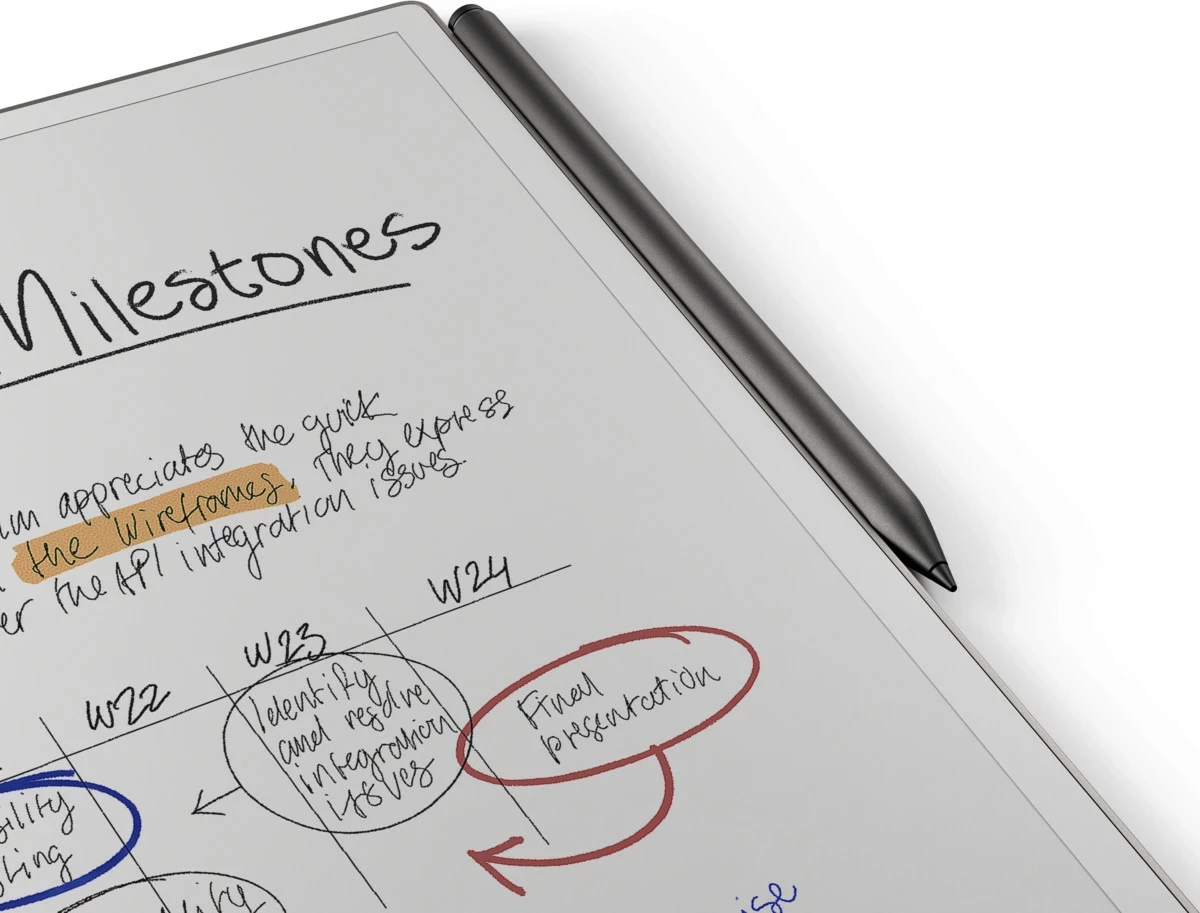 Milestones
appreciates the quick
the wireframes. They express
the API integration issues.
W22
W23
W24
Identify
and resolve
integration
issues
Final
presentation